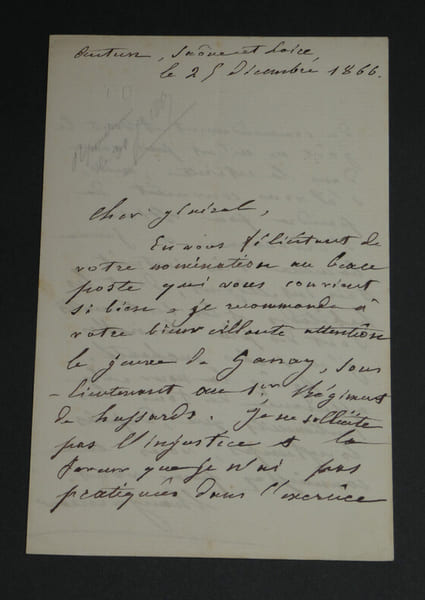 Autun, Saône et Loire
le 25 Décembre 1866.
Cher général,
En vous félicitant de
votre nomination au beau
poste qui vous convient
si bien, je recommande à
votre bienveillante attention
le jeune de Ganay, sous
-lieutenant au 1er Régiment
de hussards. Je ne sollicite
pas l'injustice & la
faveur que je n'ai pas
pratiqués dans l'exercice